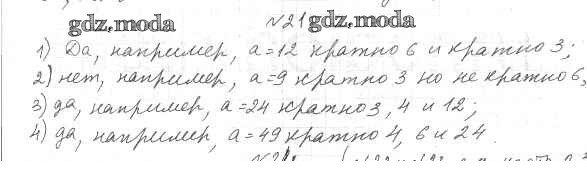 gdz.moda №21 gdz.moda
1) Да, например, a=12 кратно 6 и кратно 3;
2) нет, например, a=9 кратно 3 но не кратно 6,
3) да, например, a=24 кратно 3, 4 и 12;
4) да, например, a=49 кратно 4, 6 и 24.